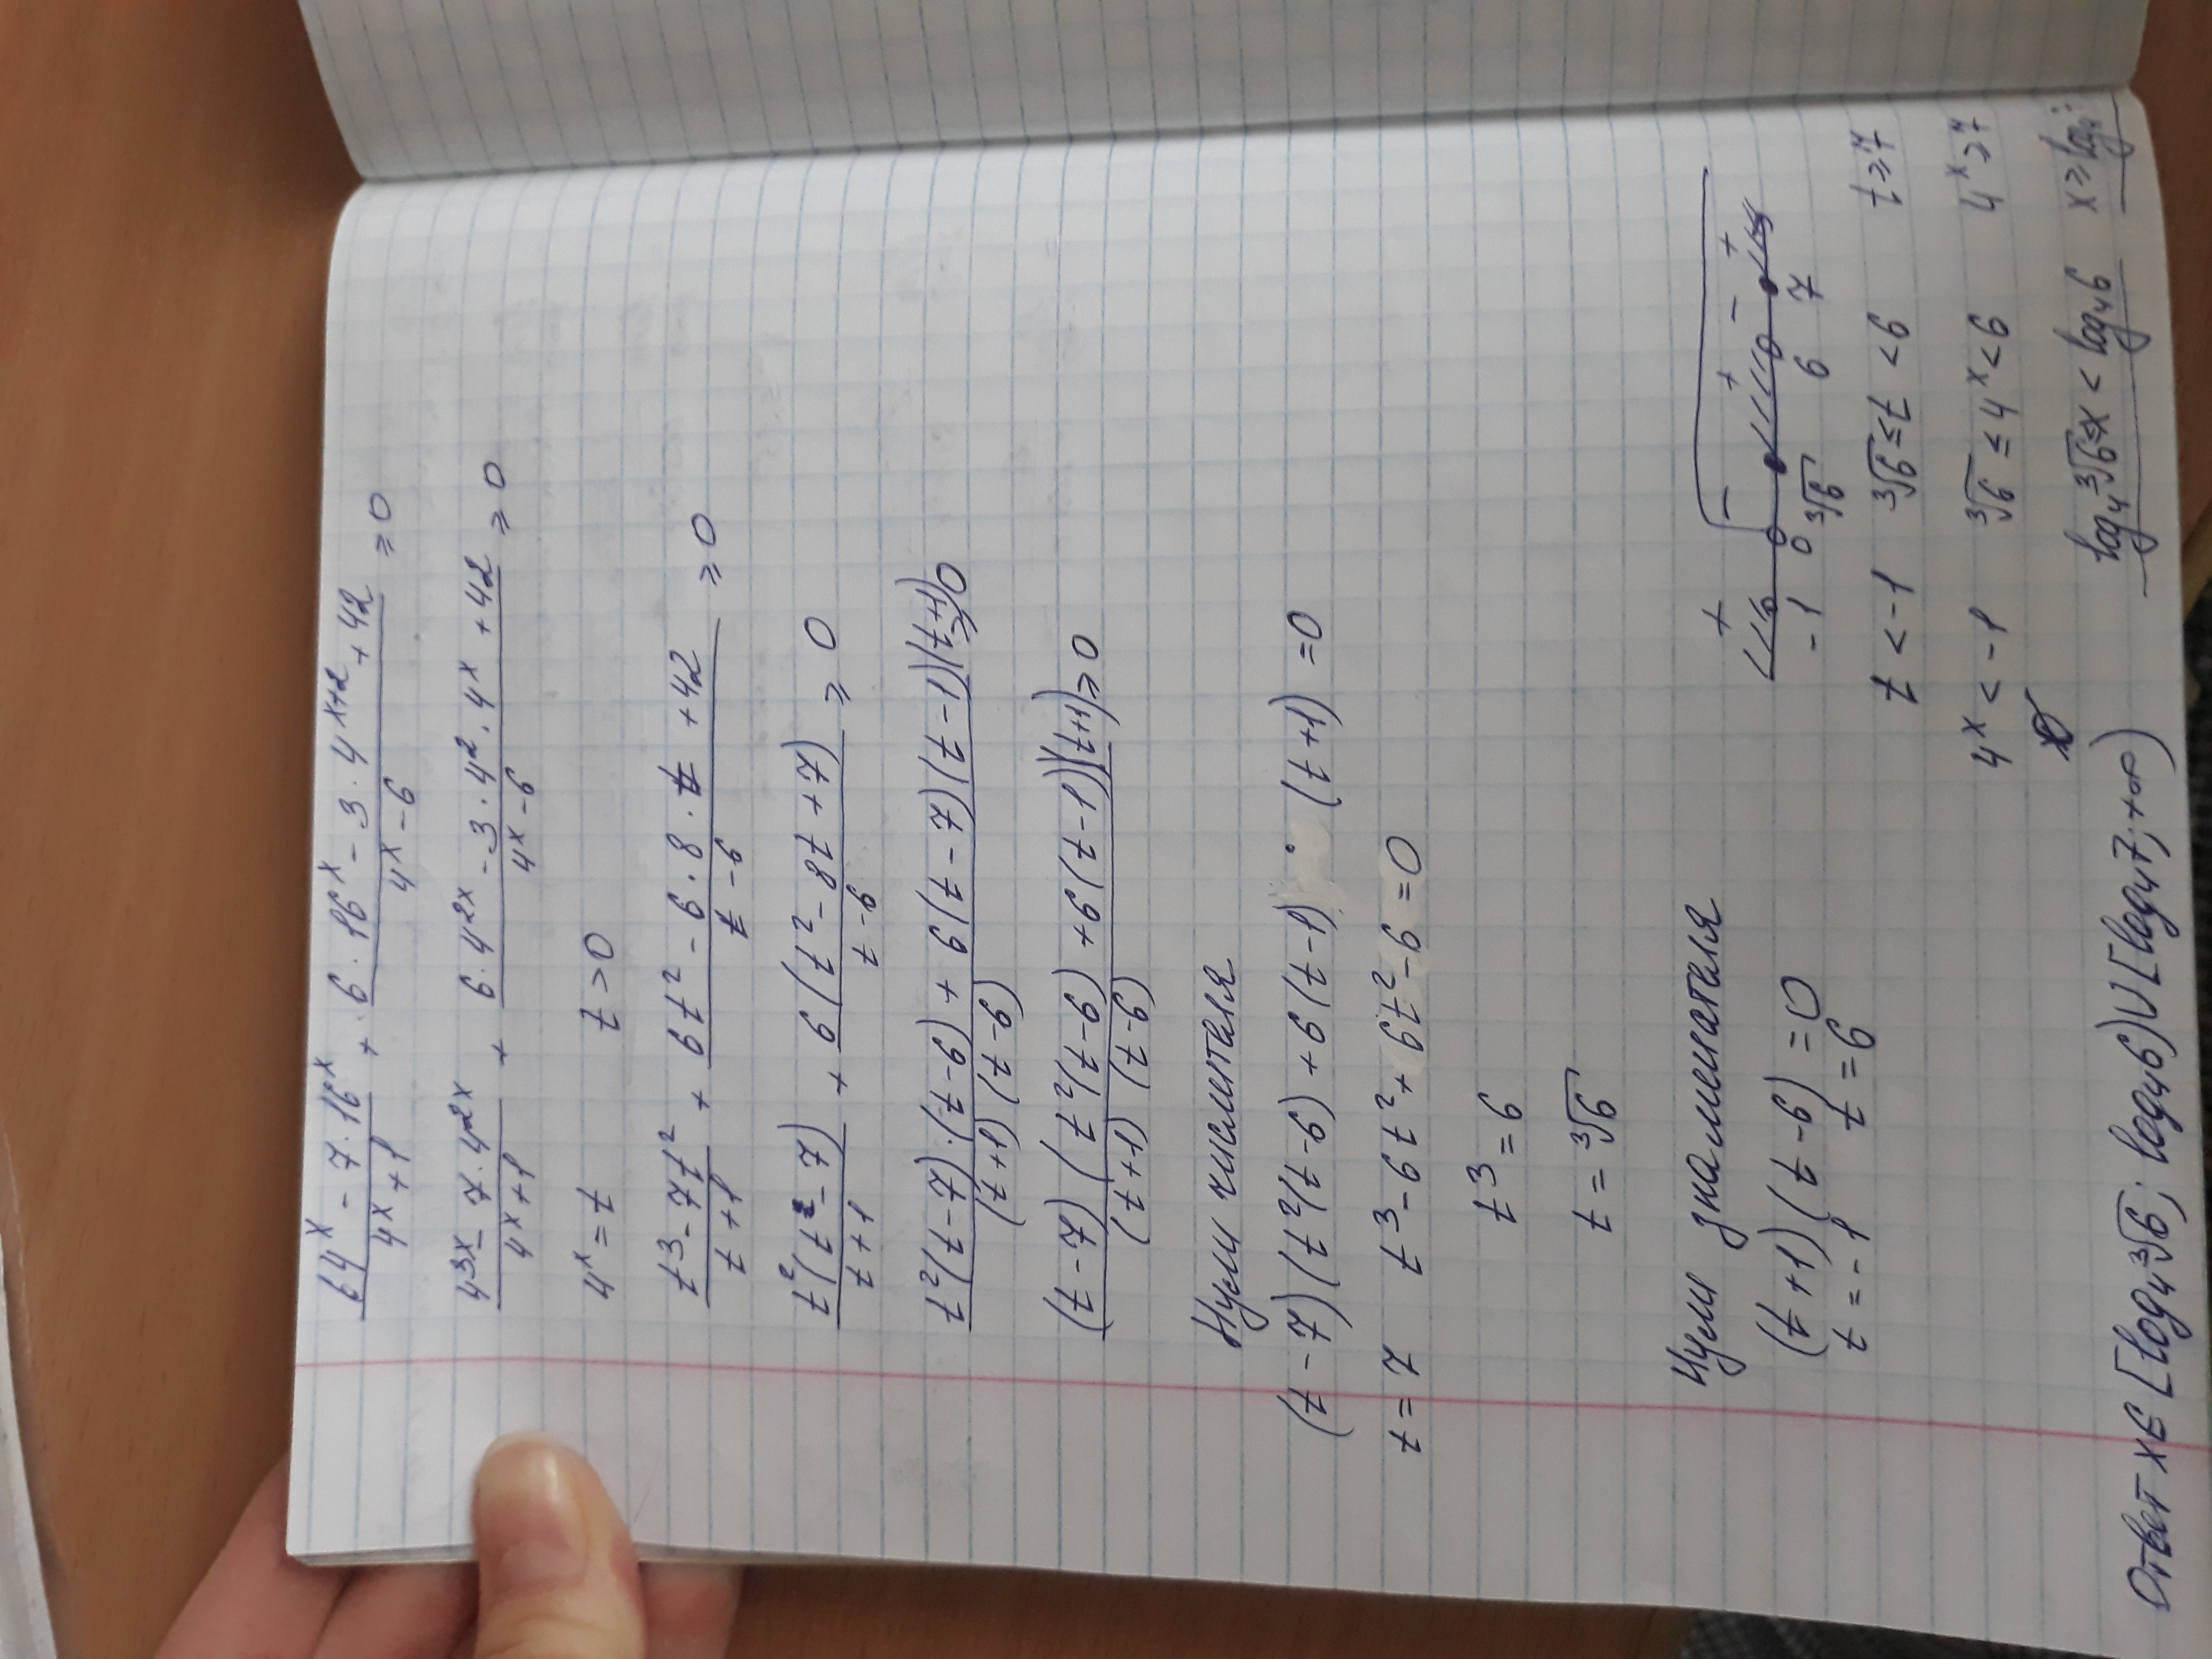 (64^x - 7·16^x)/(4^x + 1) + (6·16^x - 3·4^(x+2) + 42)/(4^x - 6) ≥ 0
(4^3x - 7·4^2x)/(4^x + 1) + (6·4^2x - 3·4^2·4^x + 42)/(4^x - 6) ≥ 0
4^x = t t > 0
(t^3 - 7t^2)/(t + 1) + (6t^2 - 6·8·t + 42)/(t - 6) ≥ 0
t^2(t - 7)/(t + 1) + 6(t^2 - 8t + 7)/(t - 6) ≥ 0
(t^2(t - 7)·(t - 6) + 6(t - 7)(t - 1)(t + 1))/((t + 1)(t - 6)) ≥ 0
(t - 7)(t^2(t - 6) + 6(t - 1)(t + 1))/((t + 1)(t - 6)) ≥ 0
Нули числителя
(t - 7)(t^2(t - 6) + 6(t - 1)·(t + 1) = 0
t = 7 t^3 - 6t^2 + 6t^2 - 6 = 0
t^3 = 6
t = ∛6
Нули знаменателя
(t + 1)(t - 6) = 0
t = -1 t = 6
+ - + - +
-1 0 ∛6 6 7
t < -1 ∛6 ≤ t < 6 t ≥ 7
4^x < -1 ∛6 ≤ 4^x < 6 4^x ≥ 7
∅ log₄∛6 ≤ x < log₄6 x ≥ log₄
Ответ x ∈ [log₄∛6; log₄6) ∪ [log₄7; +∞)